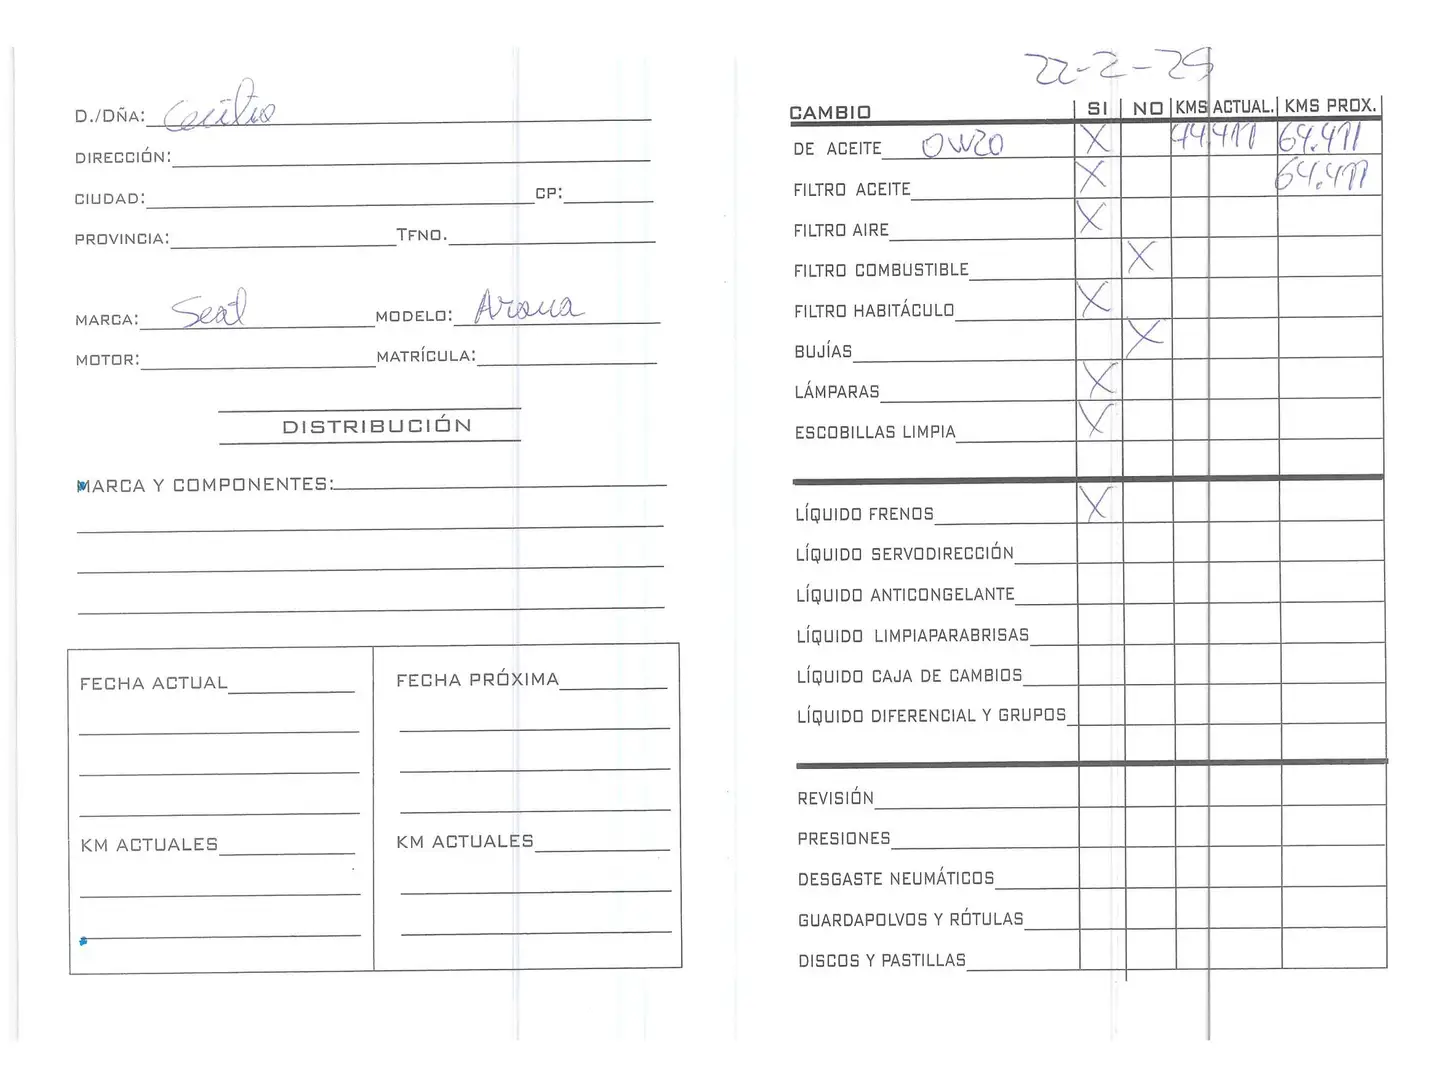 D./DÑA: Cecilio
DIRECCIÓN:
CIUDAD: CP:
PROVINCIA: TFNO.
MARCA: Seat MODELO: Arona
MOTOR: MATRÍCULA:
DISTRIBUCIÓN
MARCA Y COMPONENTES:
FECHA ACTUAL FECHA PRÓXIMA
KM ACTUALES KM ACTUALES
22-2-25
CAMBIO SI NO KMS ACTUAL. KMS PROX.
DE ACEITE OW20 X 44.411 64.411
FILTRO ACEITE X 64.411
FILTRO AIRE X
FILTRO COMBUSTIBLE X
FILTRO HABITÁCULO X
BUJÍAS X
LÁMPARAS X
ESCOBILLAS LIMPIA X
LÍQUIDO FRENOS X
LÍQUIDO SERVODIRECCIÓN
LÍQUIDO ANTICONGELANTE
LÍQUIDO LIMPIAPARABRISAS
LÍQUIDO CAJA DE CAMBIOS
LÍQUIDO DIFERENCIAL Y GRUPOS
REVISIÓN
PRESIONES
DESGASTE NEUMÁTICOS
GUARDAPOLVOS Y RÓTULAS
DISCOS Y PASTILLAS